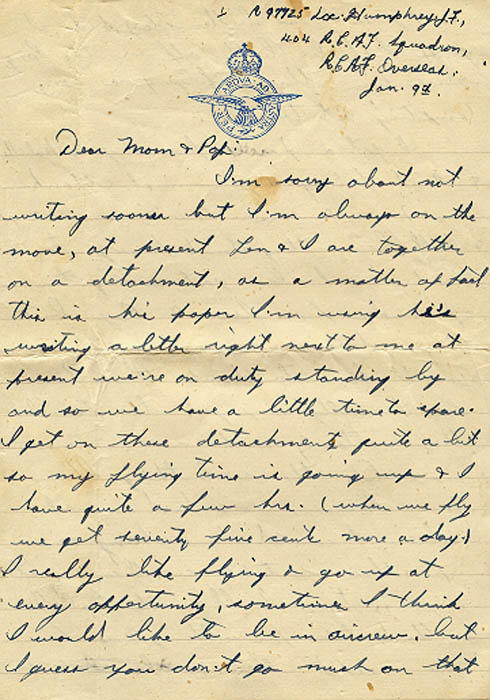 R 97725 Lac. Humphrey J.F.,
404 R.C.A.F. Squadron,
R.C.A.F. Overseas.
Jan. 9th.
PER ARDVA AD ASTRA
Dear Mom & Pop.
I'm sorry about not
writing sooner but I'm always on the
move, at present Len & I are together
on a detachment, as a matter of fact
this is his paper I'm using he's
writing a letter right next to me at
present we're on duty standing by
and so we have a little time to spare.
I get on these detachments quite a bit
so my flying time is going up & I
have quite a few hrs. (when we fly
we get seventy five cents more a day)
I really like flying & go up at
every opportunity, sometimes I think
I would like to be in aircrew, but
I guess you don't go much on that